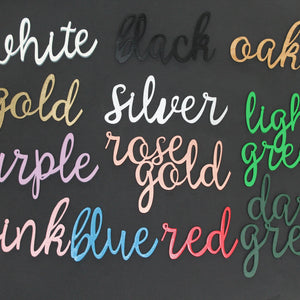 white black oak
gold silver light
purple rose green
gold
pink blue red dark
green